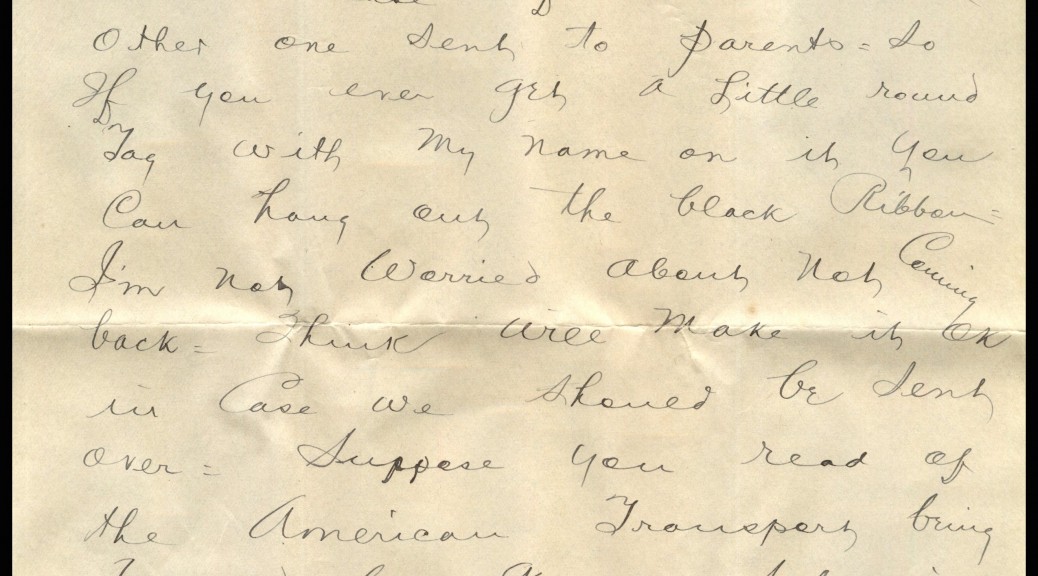 Other one sent to parents = so
If you ever get a little round
Tag with My name on it you
Can hang out the black Ribbon =
I'm not Worried about not Coming
back = Think will Make it OK
in Case we should be sent
over = Suppose you read of
the American Transport being